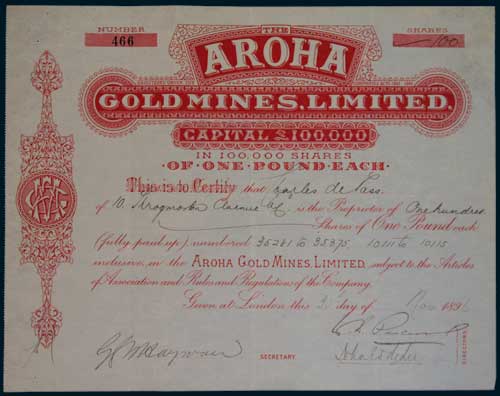 NUMBER
466
SHARES
100
THE
AROHA
GOLD MINES, LIMITED,
CAPITAL £100,000
IN 100,000 SHARES
OF ONE POUND EACH
This is to Certify that de Pass
of 10. Throgmorton Avenue E.C. is the Proprietor of One hundred
Shares of ONE POUND each
(fully paid up) numbered 35281 to 35375 10111 to 10115
inclusive, in the AROHA GOLD MINES, LIMITED, subject to the Articles
of Association and Rules and Regulations of the Company.
Given at London this 2 day of Nov 1896
SECRETARY
DIRECTORS